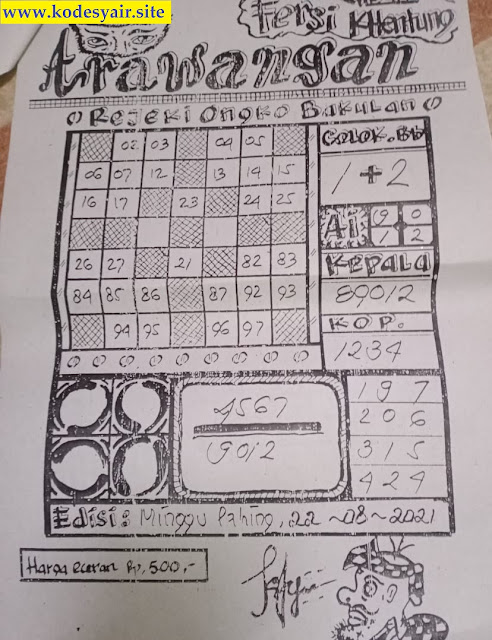 www.kodesyair.site
Fersi
Khentung
Arawangan
Rejeki Ongko Bakulan
02 03 04 05
06 07 12 13 14 15
16 17 23 24 25
26 27 21 82 83
84 85 86 87 92 93
94 95 96 97
COLOK.Bb
1+2
Ai
9 0
1 2
KEPALA
89012
KOP.
1234
4567
9012
197
206
315
424
Edisi: Minggu Pahing, 22~08~2021
Harga eceran Rp, 500,-